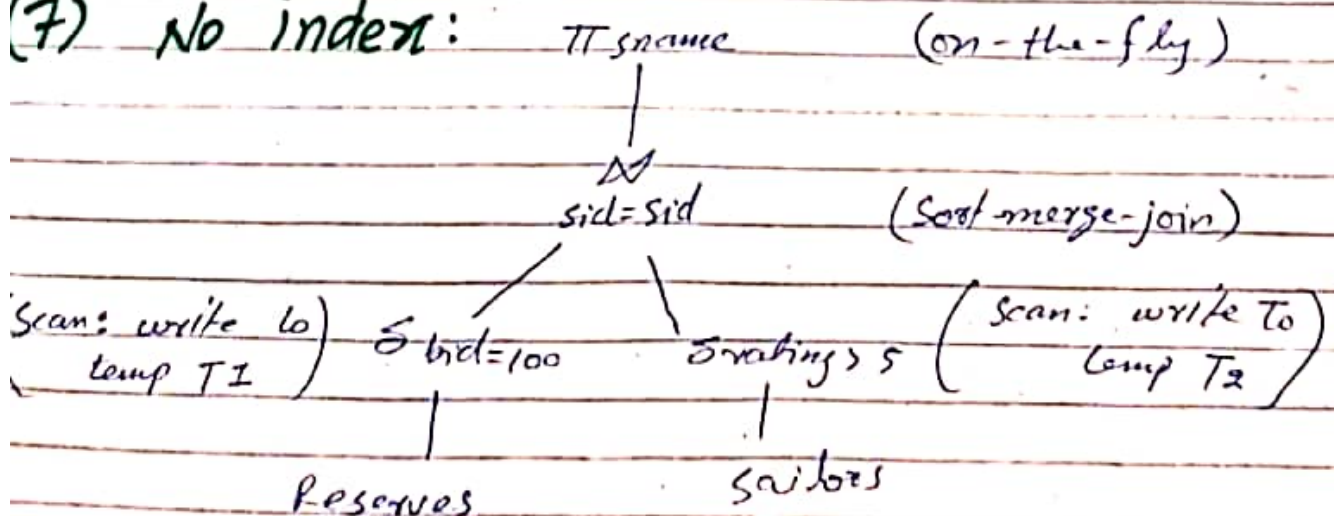 (7) No index: π sname (on-the-fly)
⋈
sid=sid (Sort-merge-join)
(Scan: write to temp T1) σ bid=100 σ rating > 5 (Scan: write To temp T2)
Reserves Sailors